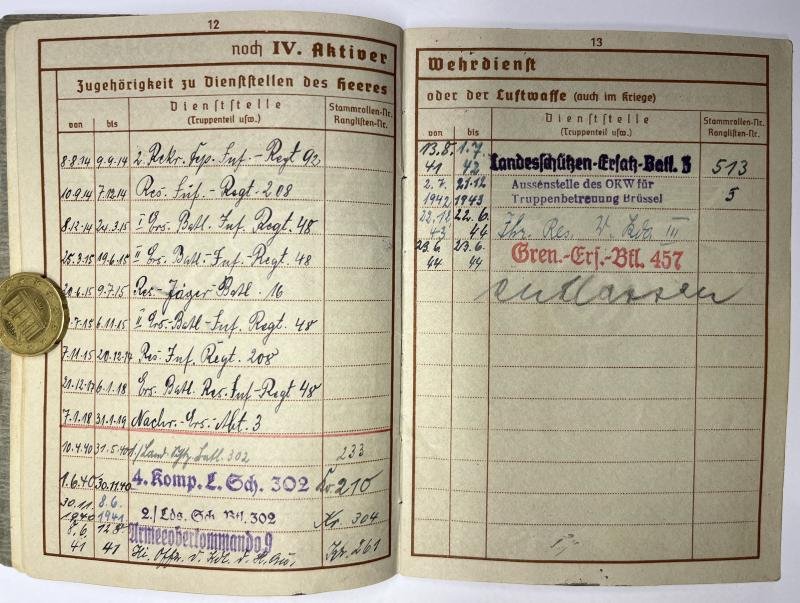 12
noch IV. Aktiver
Zugehörigkeit zu Dienststellen des Heeres
von bis Dienststelle (Truppenteil usw.) Stammrollen-Nr. Ranglisten-Nr.
8.8.14 9.9.14 2. Rekr. Dep. Inf.-Regt 92
10.9.14 7.12.14 Res. Inf.-Regt. 208
8.12.14 24.3.15 I Ers. Batl. Inf. Regt. 48
25.3.15 19.6.15 II Ers. Batl.-Inf.-Regt. 48
20.6.15 9.7.15 Res.-Jäger-Batl. 16
7.15 6.11.15 II Ers.-Batl.-Inf. Regt. 48
7.11.15 20.12.17 Res. Inf. Regt. 208
21.12.17 6.1.18 Ers. Batl. Res. Inf-Regt 48
7.1.18 31.1.19 Nachr.-Ers.-Abt. 3
10.4.40 31.5.40 1./Land. Schtz. Batl. 302 233
1.6.40 30.11.40 4. Komp. L. Sch. 302 Kr. 210
30.11. 1940 8.6. 1941 2./ Lds. Sch. Btl. 302 Kr. 304
8.6. 41 12.8. 41 Armeeoberkommando 9
Kr. 261
13
Wehrdienst
oder der Luftwaffe (auch im Kriege)
von bis Dienststelle (Truppenteil usw.) Stammrollen-Nr. Ranglisten-Nr.
13.8. 41 1.7. 42 Landesschützen-Ersatz-Batl. 3 513
2.7. 1942 21.12 1943 Aussenstelle des OKW für Truppenbetreuung Brüssel 5
22.12. 43 22.6. 44 Fhr. Res. W. Kdo III
23.6. 44 23.6. 44 Gren.-Ers.-Btl. 457
entlassen